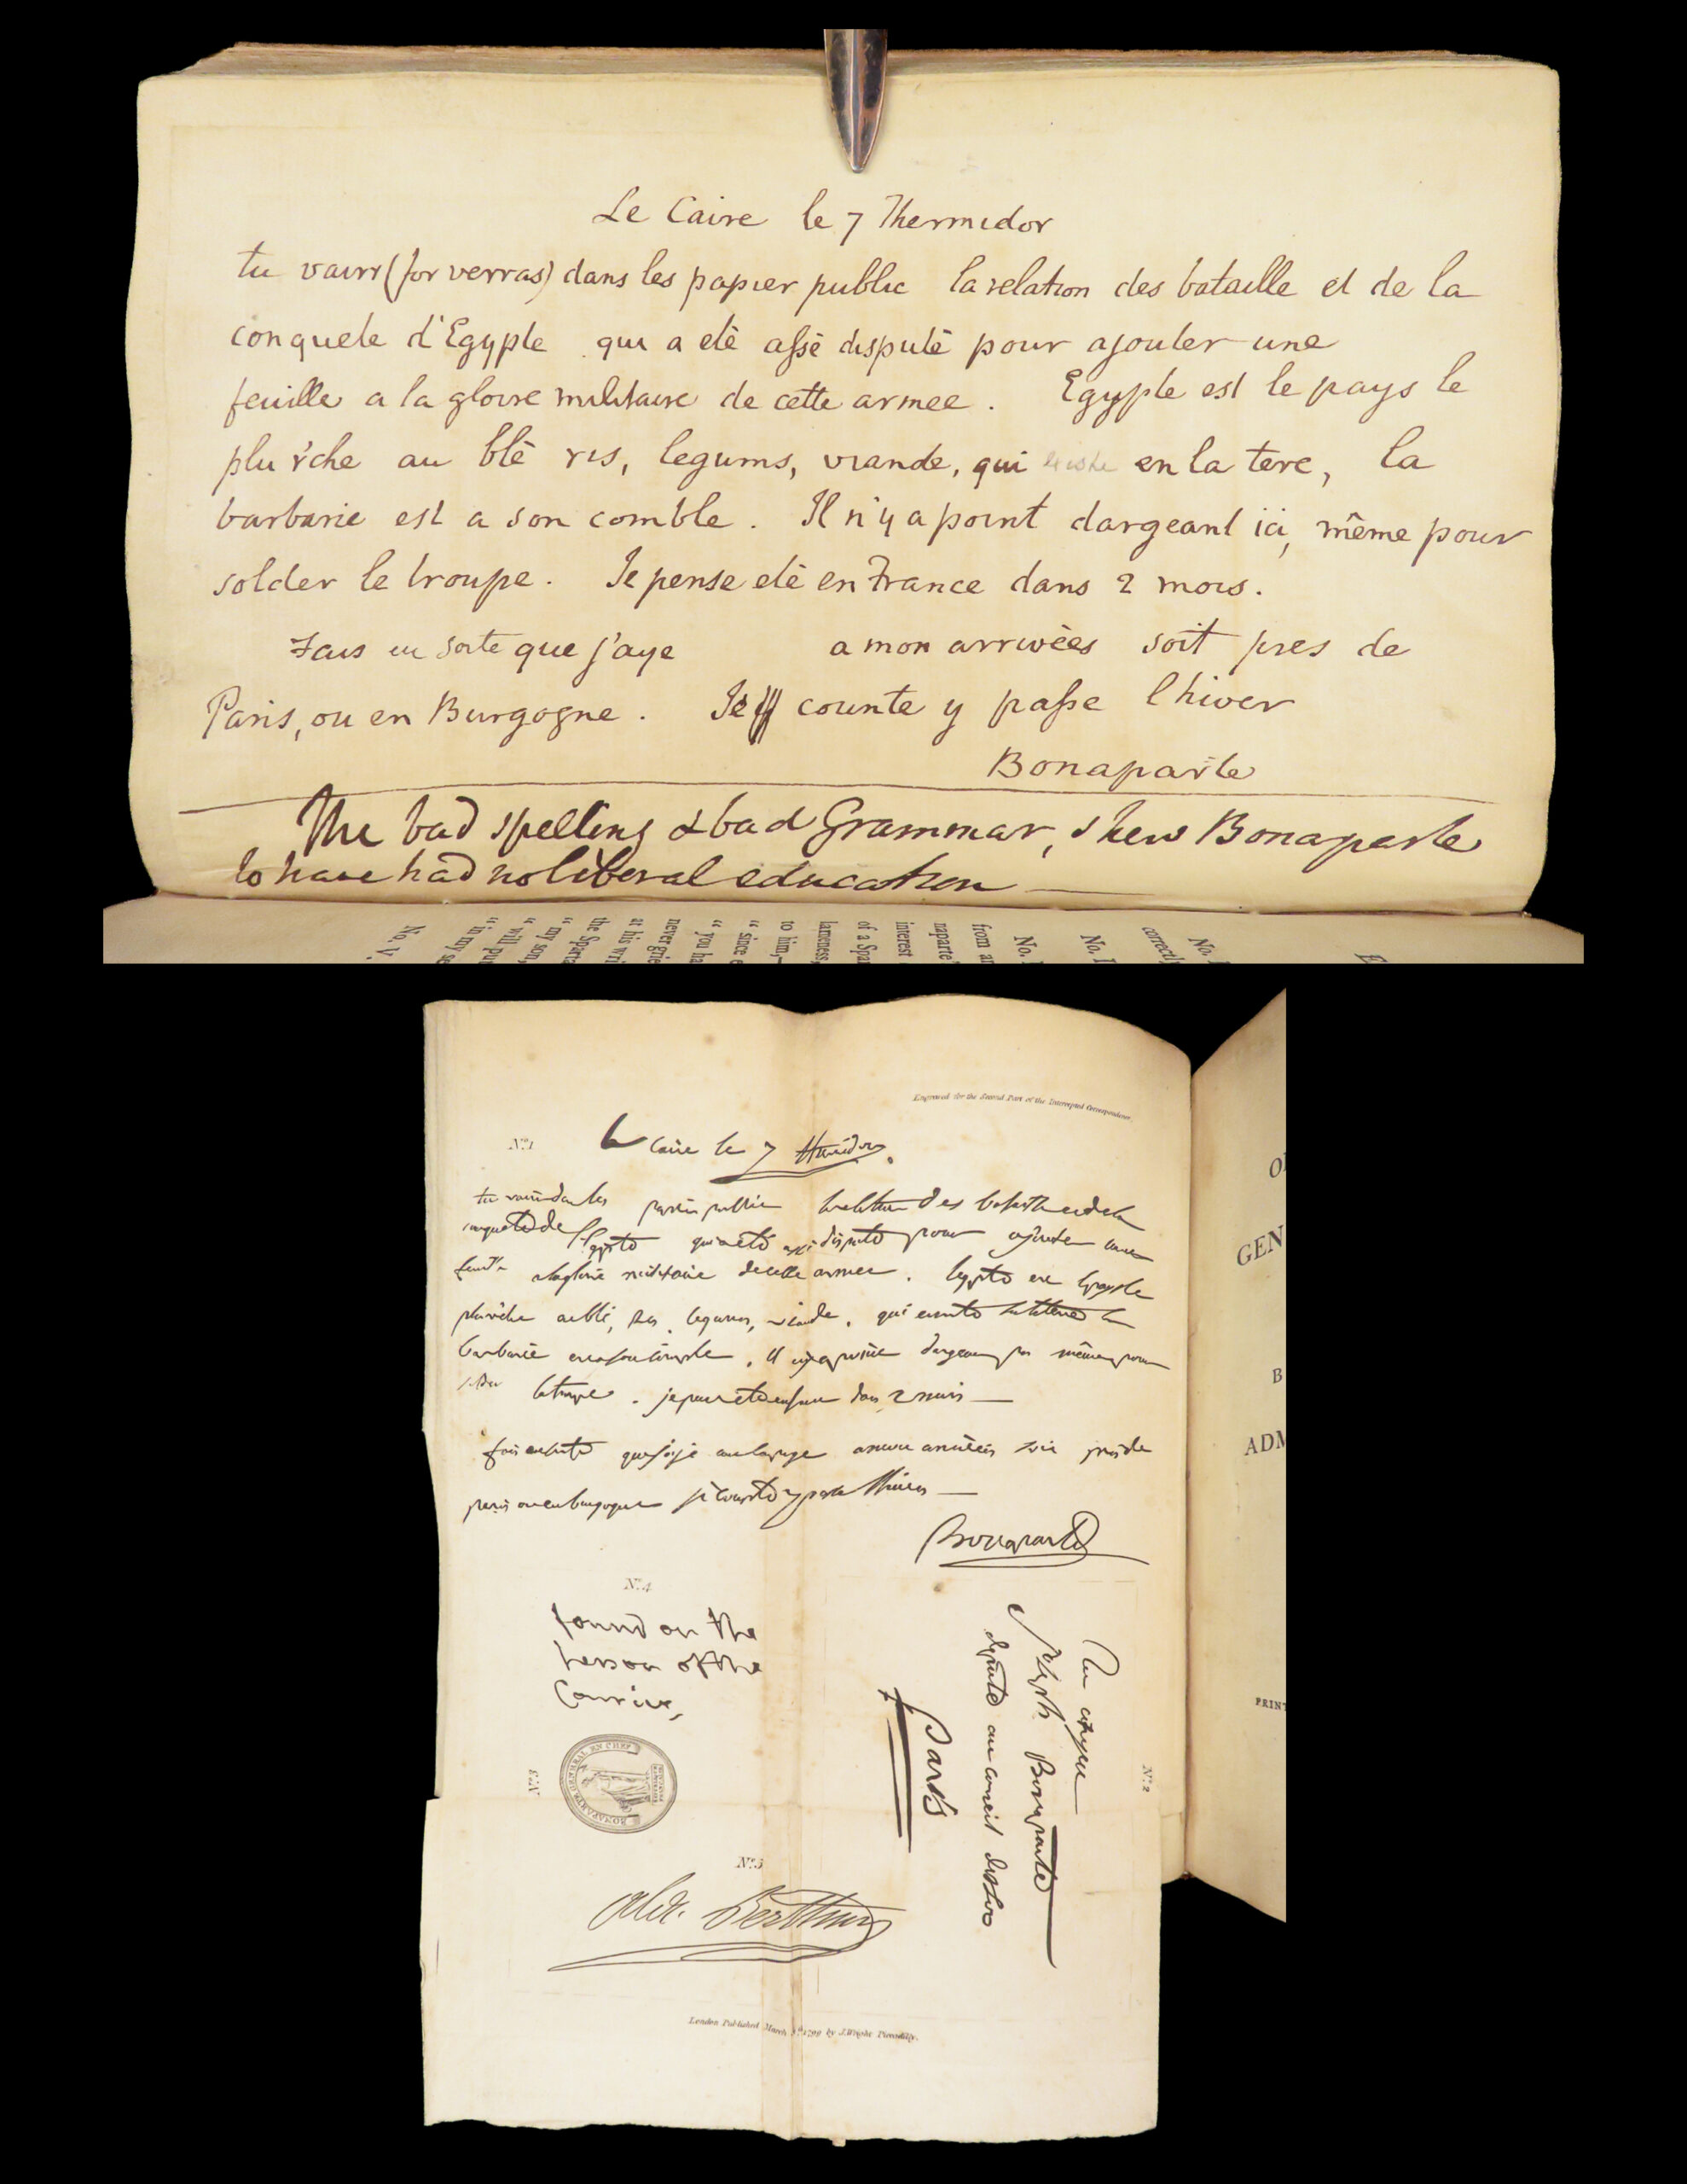 Le Caire le 7 Thermidor
tu vairr (for verras) dans les papier public la relation des bataille et de la
conquete d'Egypte qui a eté assé disputé pour ajouter une
feuille a la gloire militaire de cette armee. Egypte est le pays le
plu riche au blé ris, legums, viande, qui en la tere, la
barbarie est a son comble. Il n'y a point dargeant ici, même pour
solder le troupe. Je pense eté en France dans 2 mois.
Fais en sorte que j'aye a mon arrivées soit pres de
Paris, ou en Burgogne. Je counte y passe l hiver
Bonaparte
The bad spelling & bad Grammar, shew Bonaparte
to have had no liberal education
No. V.
"in my se
"will pu
"my son,
the Sparta
at his wri
never grie
"you ha
"since e
to him,
lameness,
of a Spa
interest
naparte'
from a
No. I
No. I
correctl
No. I
Engraved for the Second Part of the Intercepted Correspondence
No. 1
Le Caire le 7 Thermidor.
tu vairr dans les papier public la relation des bataille et de la
conquete de l'Egypte qui a eté assé disputé pour ajouter une
feuille a la gloire militaire de cette armee. l'egypte est le pays le
plu riche au blé, ris, legumes, viande, qui existe la
barbarie est a son comble. Il n'y a point dargeant pas même pour
solder la troupe. je pense eté en france dans 2 mois
fais en sorte que j'aye une campagne a mon arrivées soit pres de
paris ou en burgogne je counte y passe l'hiver
Bonaparte
No. 4
found on the
person of the
Courier,
No. 2
Au citoyen
Joseph Bonaparte
deputé au conseil des 500
Paris
No. 3
BONAPARTE GENERAL EN CHEF
No. 5
Alex. Berthier
London Published March 1799 by J. Wright Piccadilly.
O
GEN
B
ADM
PRINT